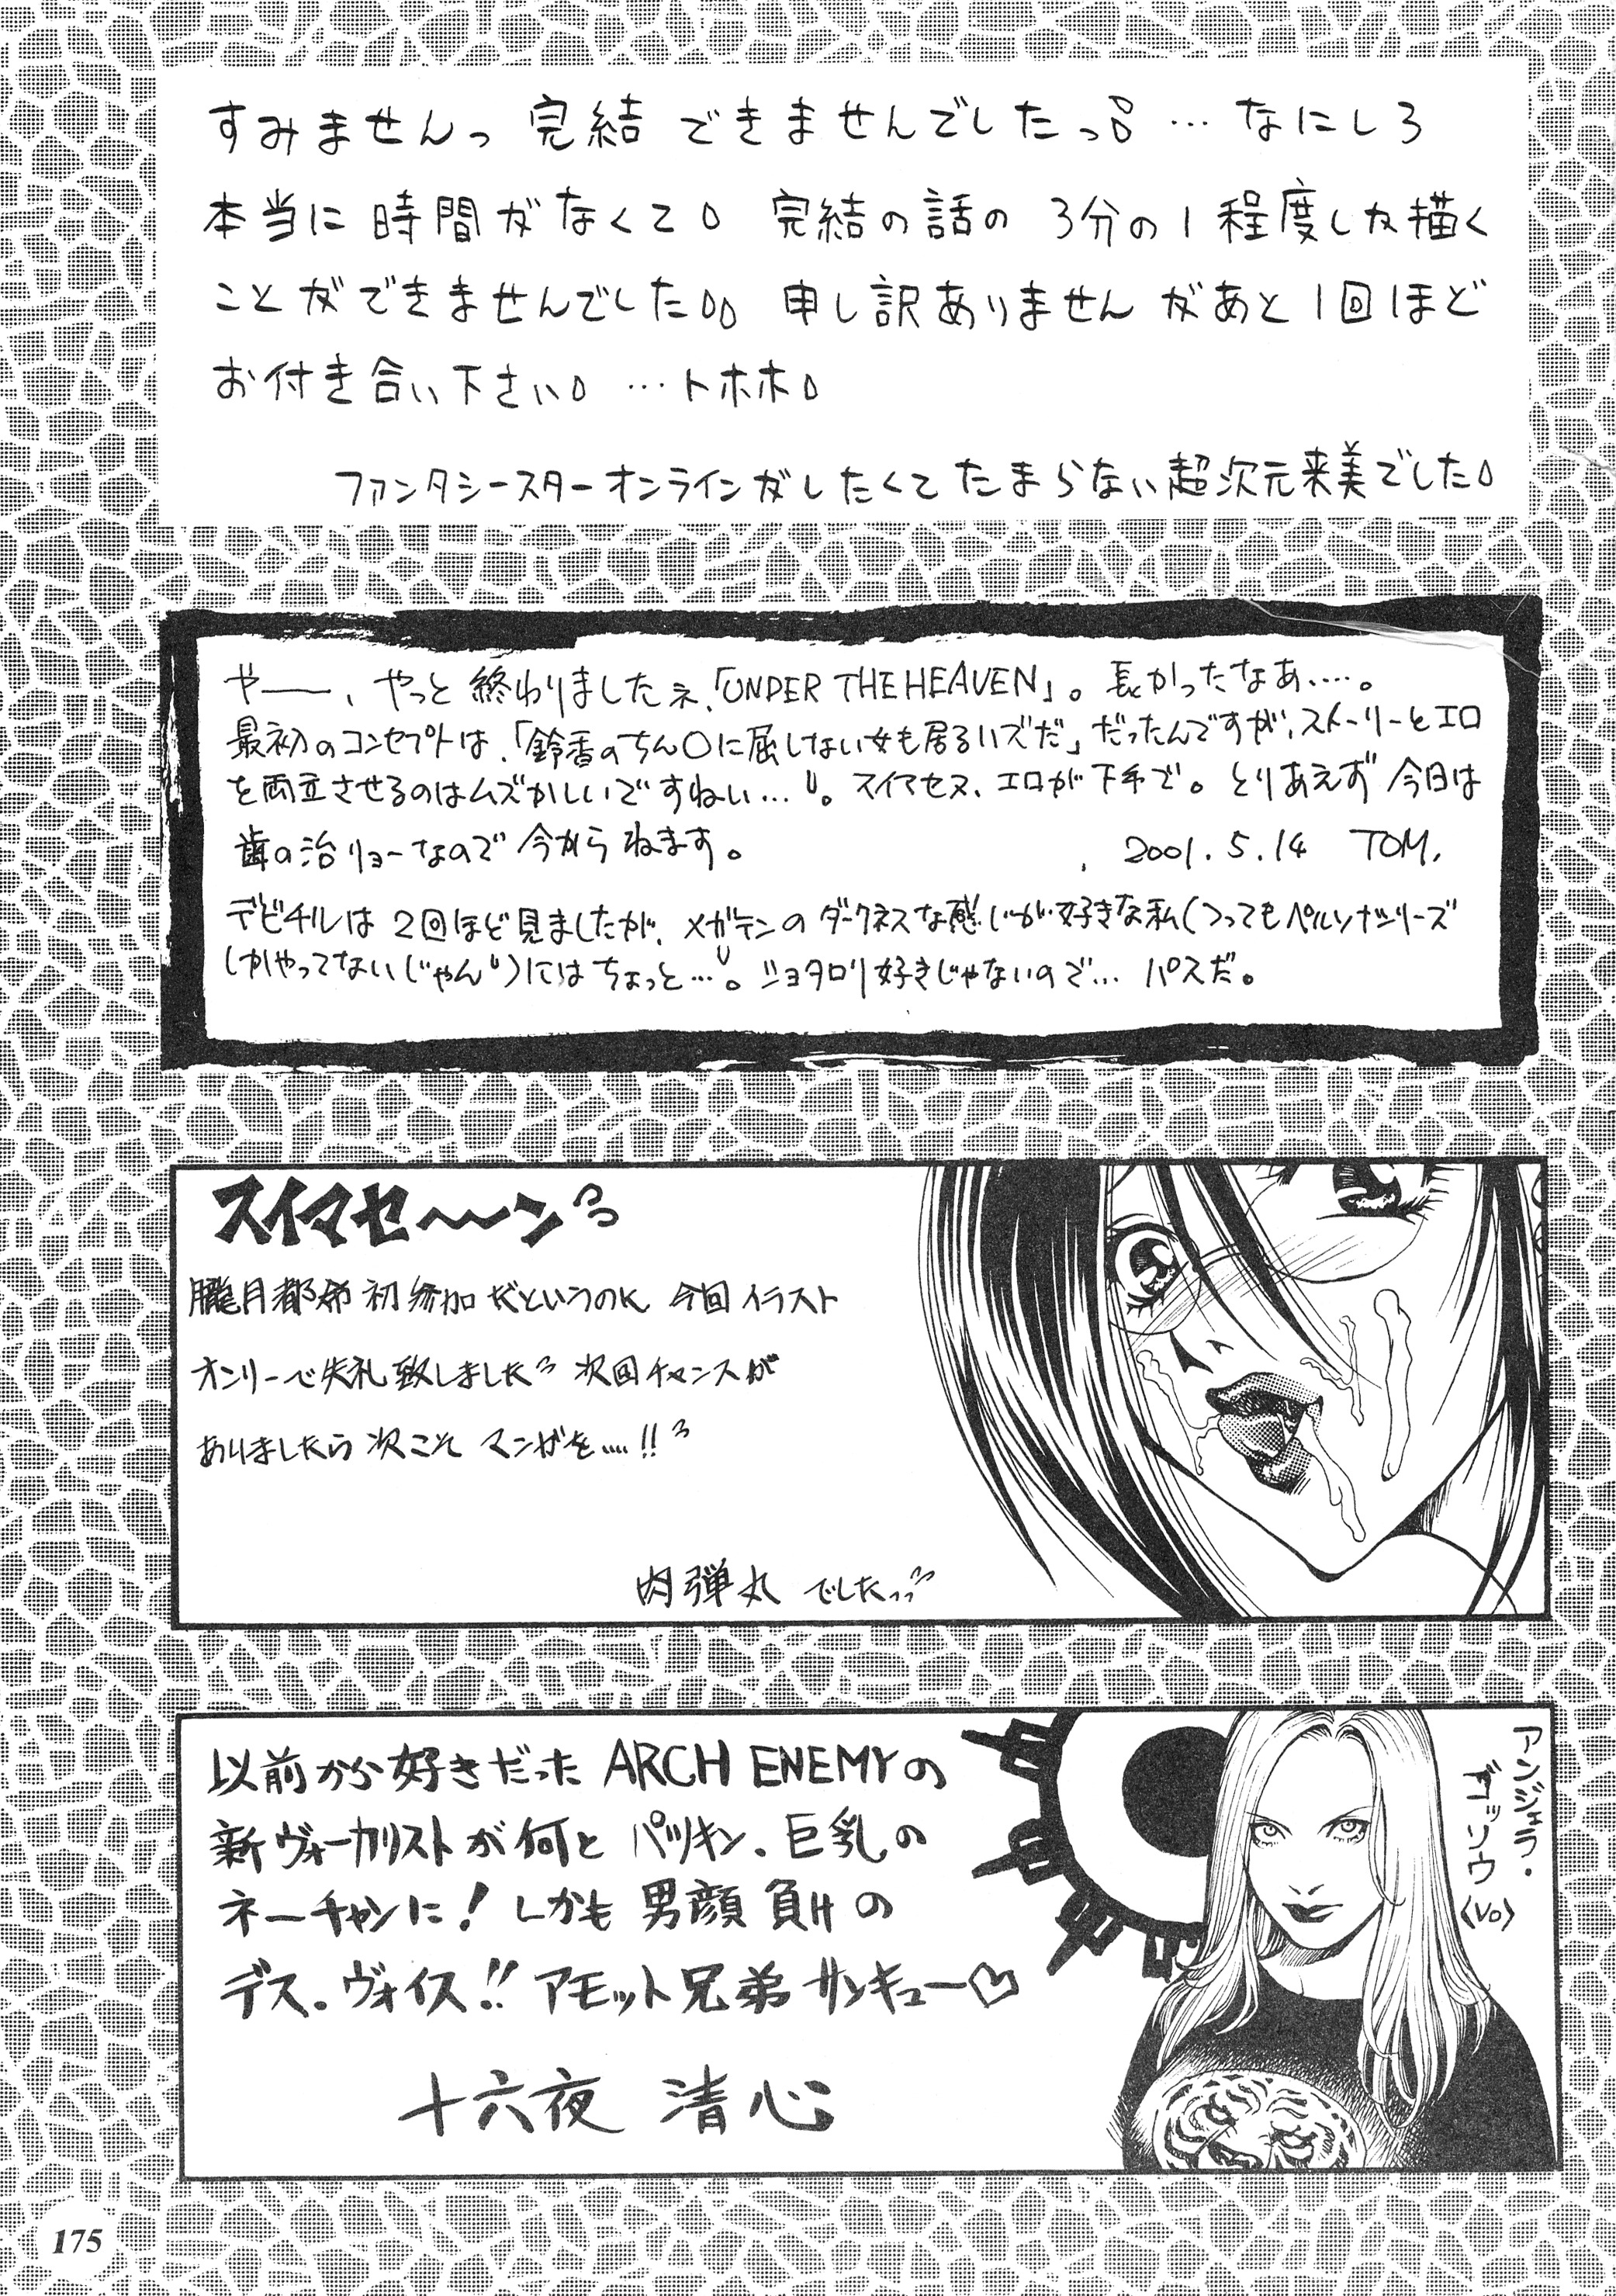 すみませんっ 完結 できませんでしたっ … なにしろ
本当に 時間 がなくて 完結の話の 3分の1程度しか描く
ことができませんでした 申し訳ありませんがあと1回ほど
お付き合い下さい …トホホ
ファンタシースターオンラインがしたくてたまらない超次元来美でした
やー、やっと終わりましたネ、「UNDER THE HEAVEN」。長かったなあ…。
最初のコンセプトは、「鈴香のちん〇に屈しない女も居るハズだ」だったんですが、ストーリーとエロ
を両立させるのはムズかしいですねい…。スイマセヌ、エロが下手で。とりあえず今日は
歯の治リョーなので今からねます。
2001.5.14 TOM.
デビチルは2回ほど見ましたが、メガテンのダークネスな感じが好きな私(つってもペルソナシリーズ
しかやってないじゃん)にはちょっと…。ショタロリ好きじゃないので… パスだ。
スイマセ〜〜ン
朧月都希初参加だというのに 今回イラスト
オンリーで失礼致しました 次回チャンスが
ありましたら 次こそ マンガを……!!
肉弾丸 でしたっっ
アンジェラ・
ゴッソウ
〈Vo〉
以前から好きだった ARCH ENEMYの
新ヴォーカリストが何と パツキン、巨乳の
ネーチャンに! しかも 男顔負けの
デス・ヴォイス!! アモット兄弟 サンキュー♡
十六夜 清心
175